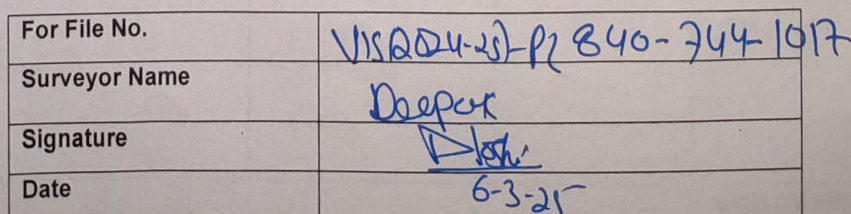 For File No. VIS(2024-25)-PL840-744-1017
Surveyor Name Deepak
Signature DJoshi
Date 6-3-25